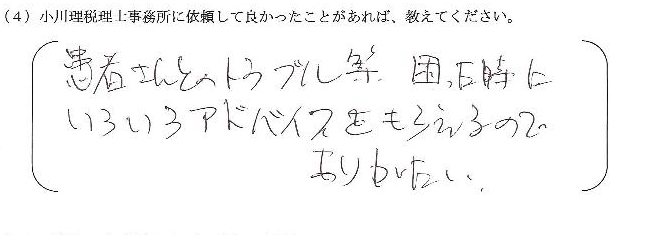 (4) 小川理税理士事務所に依頼して良かったことがあれば、教えてください。
患者さんとのトラブル等 困った時に
いろいろアドバイスをもらえるので
ありがたい。